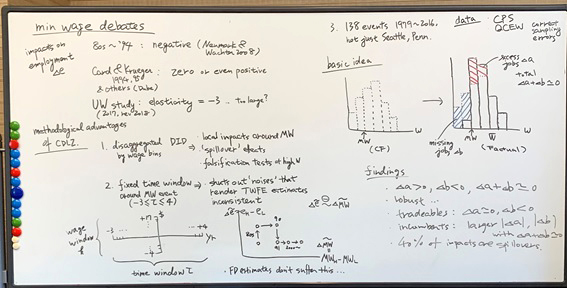 min wage debates
impacts on
employment
Δe
80s ~ '94 : negative (Neumark &
Wachter 2008)
Card & Krueger : zero or even positive
1994,
& others (Dube)
UW study : elasticity = -3 .. too large?
(2017, rev 2018)
methodological advantages
of CDLZ.
1. disaggregated DID
by wage bins
- local impacts around MW
- 'spillover' effects
- falsification tests at high W
2. fixed time window
around MW event
(-3 ≤ τ ≤ 4)
- shuts out 'noises' that
render TWFE estimates
inconsistent
wage
window
$
+17 $
-3 ...
... +4
yr
-4
time window τ
90
80s
2000~
MWH - MWL
• FD estimates don't suffer this ...
3. 138 events 1979~2016,
not just Seattle, Penn.
data : CPS
QCEW
correct
sampling
errors
basic idea
MW
W
(CF)
→
excess
jobs Δa
total
Δa+Δb ≃ 0
missing
jobs Δb
MW
W̅
W
(Factual)
findings
• Δa>0, Δb<0, Δa+Δb ≃ 0
• robust ...
• tradeables : Δa≃0, Δb<0
• incumbents : larger |Δa|, |Δb|
with Δa+Δb≃0
• 40% of impacts are spillovers.